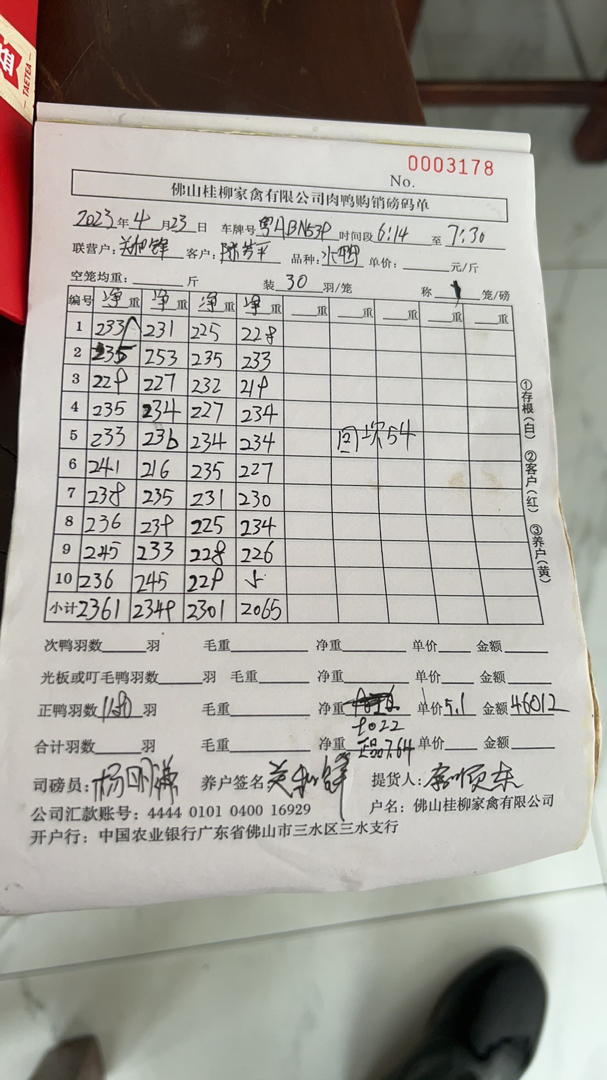 TAETEA
0003178
No.
佛山桂柳家禽有限公司肉鸭购销磅码单
2023年4月23日 车牌号粤ABN539 时间段6:14至7:30
联营户: 客户: 品种:水鸭 单价: 元/斤
空笼均重: 斤 装30羽/笼 称1笼/磅
编号 净重 净重 净重 净重 重 重 重 重
1 233 231 225 228
2 235 253 235 233
3 229 227 232 219
4 235 234 227 234
5 233 236 234 234 回坎54
6 241 216 235 227
7 238 235 231 230
8 236 239 225 234
9 245 233 228 226
10 236 245 229
小计 2361 2349 2301 2065
①存根(白) ②客户(红) ③养户(黄)
次鸭羽数 羽 毛重 净重 单价 金额
光板或叮毛鸭羽数 羽 毛重 净重 单价 金额
正鸭羽数1180羽 毛重 净重 单价5.1 金额46012
9022
合计羽数 羽 毛重 净重 7.64 单价 金额
司磅员: 养户签名 提货人:
公司汇款账号: 4444 0101 0400 16929 户名: 佛山桂柳家禽有限公司
开户行: 中国农业银行广东省佛山市三水区三水支行